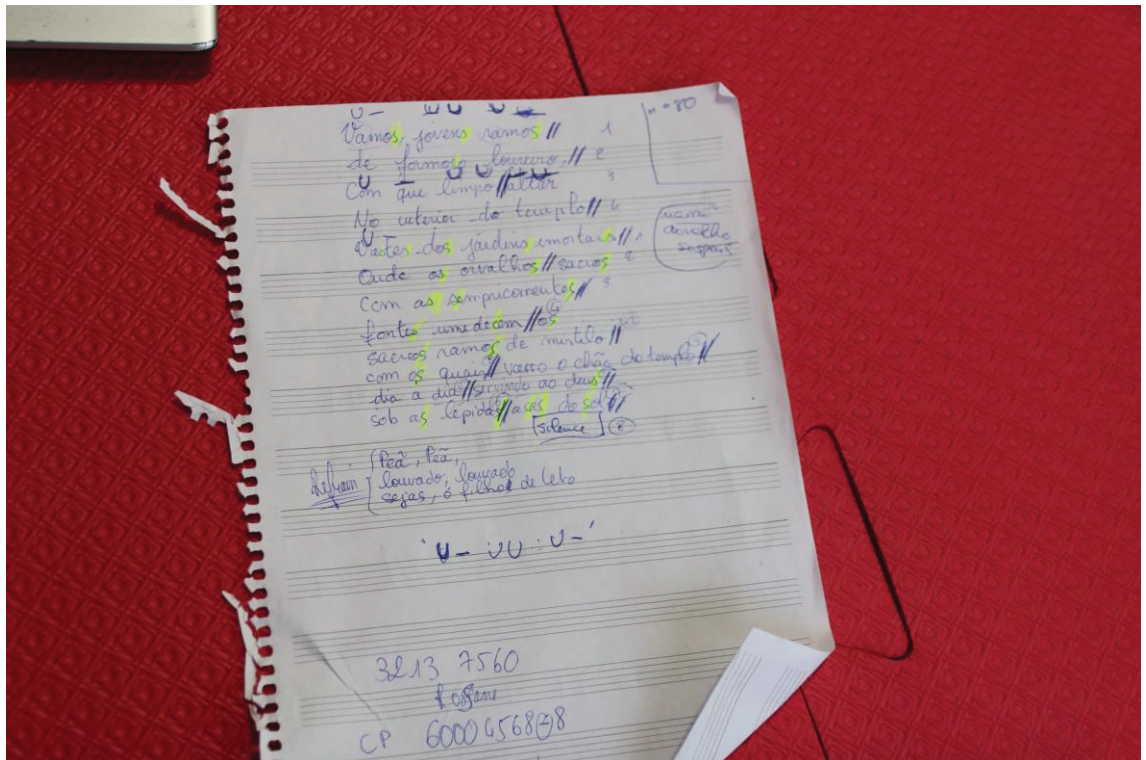 U – UU U –
n = 80
Vamos, jovens ramos // 1
de formoso loureiro, // 2
Com que limpo // altar 3
No interior do templo // 4
Vustes dos jardins imortais // 1
ramo
orvalho
Onde os orvalhos // sacros 2
Com as sempricorrentes // 3
fontes umedecem // os
sacros ramos de mirtilo //
com os quais // varro o chão do templo //
dia a dia // servindo ao deus //
sob as lépidas // asas do sol //
[silence] 8
Refrain
Peã, Peã,
louvado, louvado
sejas, ó filho de Leto
U – UU U –
3213 7560
CP 60004568-8